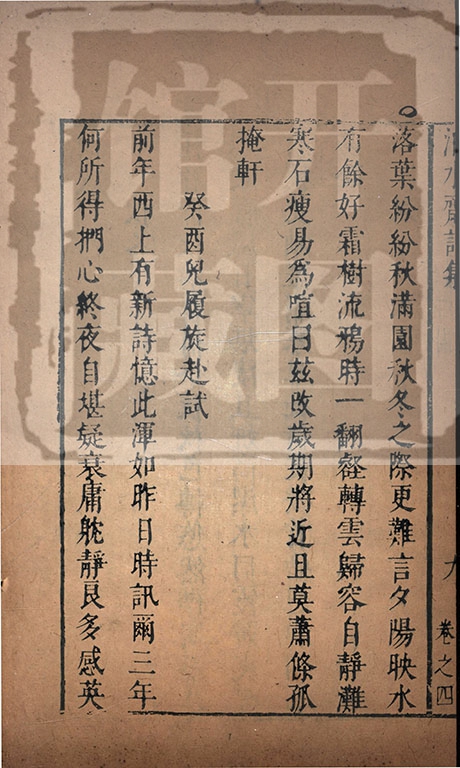 落葉紛紛秋滿園秋冬之際更難言夕陽映水
有餘好霜樹流鴉時一翻壑轉雲歸容自靜灘
寒石瘦易為喧日茲改歲期將近且莫蕭條孤
掩軒
癸酉兒履旋赴試
前年西上有新詩憶此渾如昨日時訊爾三年
何所得捫心終夜自堪疑衰庸躭靜良多感英
卷之四